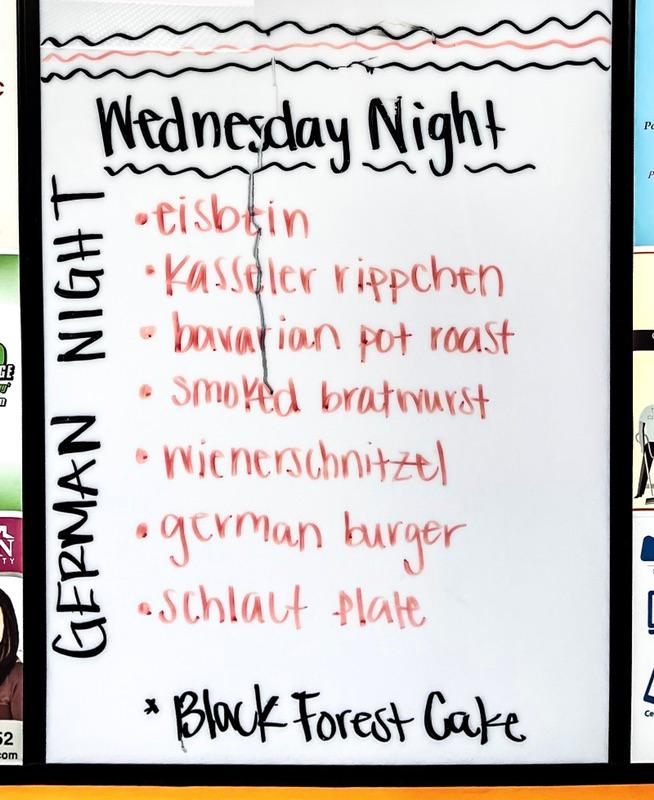 Wednesday Night
GERMAN NIGHT
•eisbein
•Kasseler rippchen
• bavarian pot roast
• smoked bratwurst
• wienerschnitzel
• german burger
•schlact plate
* Black Forest Cake
52